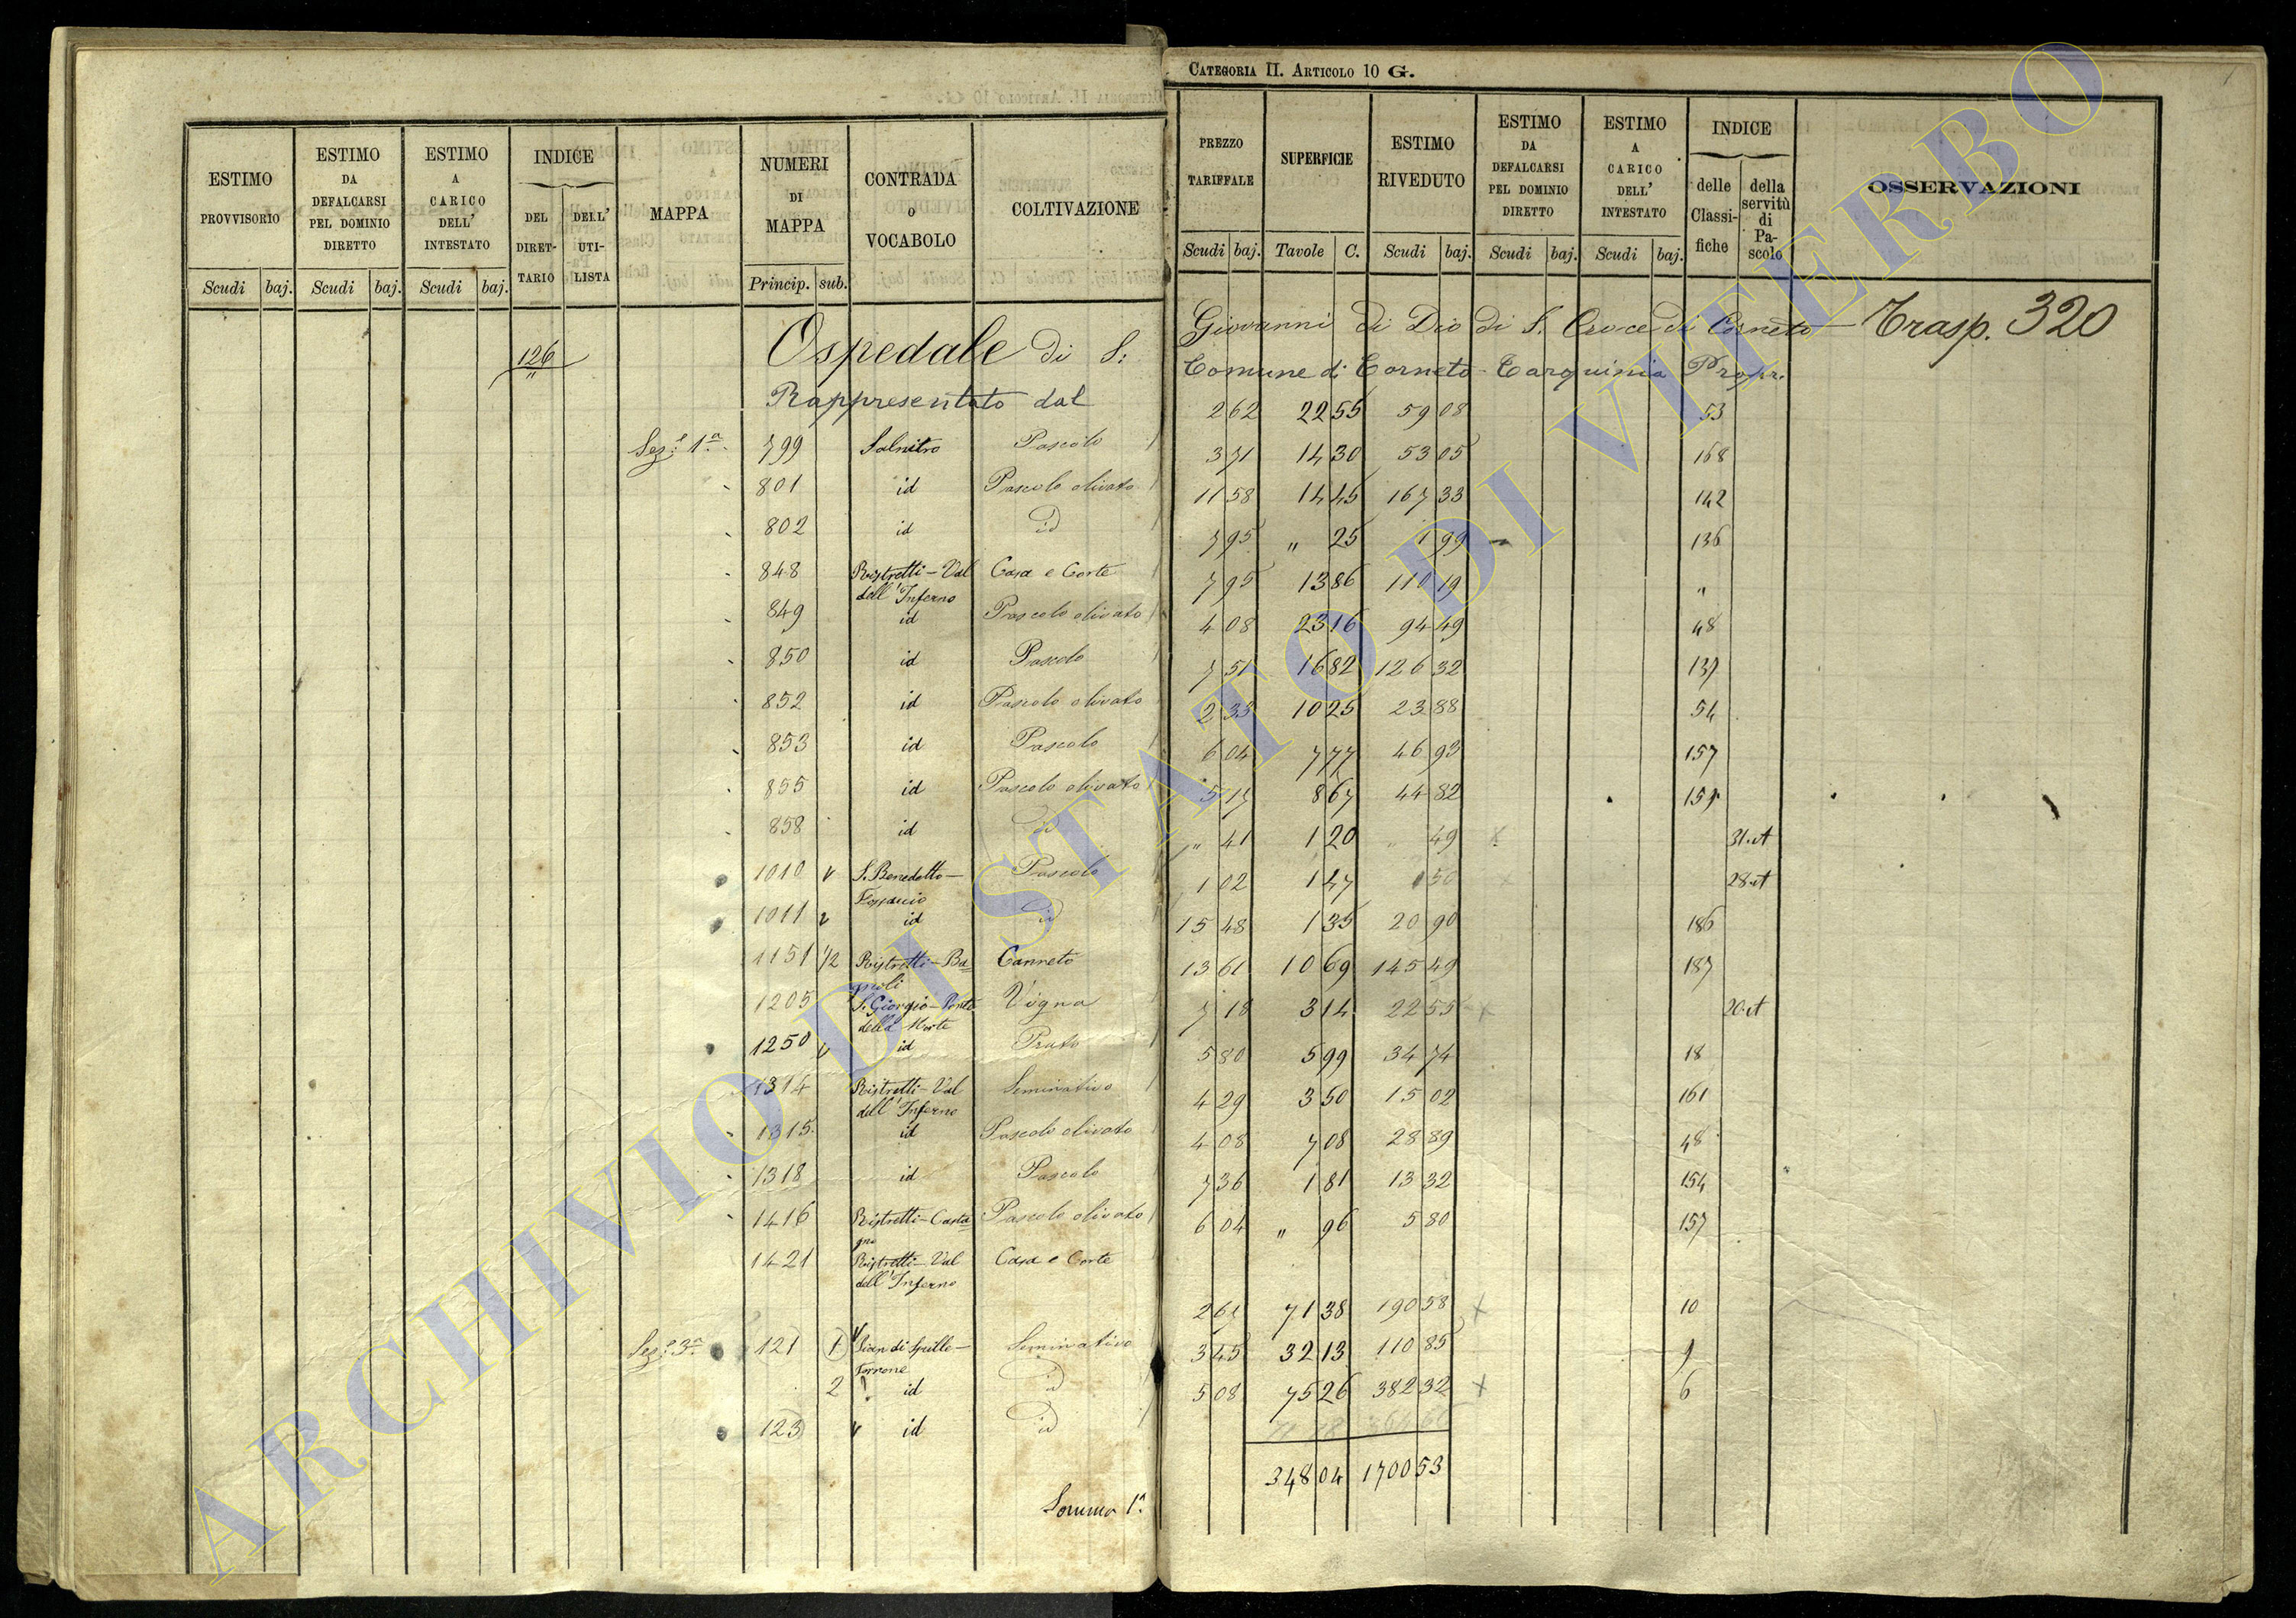 CATEGORIA II. ARTICOLO 10 G.
ESTIMO PROVVISORIO Scudi baj.
ESTIMO DA DEFALCARSI PEL DOMINIO DIRETTO Scudi baj.
ESTIMO A CARICO DELL' INTESTATO Scudi baj.
INDICE DEL DIRET-TARIO DELL' UTI-LISTA
MAPPA
NUMERI DI MAPPA Princip. sub.
CONTRADA O VOCABOLO
COLTIVAZIONE
PREZZO TARIFFALE Scudi baj.
SUPERFICIE Tavole C.
ESTIMO RIVEDUTO Scudi baj.
ESTIMO DA DEFALCARSI PEL DOMINIO DIRETTO Scudi baj.
ESTIMO A CARICO DELL' INTESTATO Scudi baj.
INDICE delle Classi-fiche della servitù di Pa-scolo
OSSERVAZIONI
126 Ospedale di S: Giovanni di Dio di S. Croce di Corneto — Trasp. 320
"
Rappresentato dal Comune di Corneto-Tarquinia Propr.
Sez.e 1a 799 Salnitro Pascolo 2 62 22 55 59 08 53
801 id Pascolo olivato 3 71 14 30 53 05 168
802 id id 11 58 14 45 167 33 142
848 Ristretti-Val dell'Inferno Casa e Corte 7 95 " 25 1 99 136
849 id Pascolo olivato 7 95 13 86 110 19 "
850 id Pascolo 4 08 23 16 94 49 48
852 id Pascolo olivato 7 51 16 82 126 32 137
853 id Pascolo 2 33 10 25 23 88 54
855 id Pascolo olivato 6 04 7 77 46 93 157
858 id id 5 17 8 67 44 82 159
1010 S. Benedetto- Pascolo " 41 1 20 " 49 31.et
1011 id id 1 02 1 47 1 50 28.et
1151 1/2 Ristretti-Bagnoli Canneto 15 48 1 35 20 90 186
1205 S. Giorgio-Ponte della Morte Vigna 13 61 10 69 145 49 187
1250 id Prato 7 18 3 14 22 55 x 20.et
1314 Ristretti-Val dell'Inferno Seminativo 5 80 5 99 34 74 18
1315 id Pascolo olivato 4 29 3 50 15 02 161
1318 id Pascolo 4 08 7 08 28 89 48
1416 Ristretti-Castagno Pascolo olivato 7 36 1 81 13 32 154
1421 Ristretti-Val dell'Inferno Casa e Corte 6 04 " 96 5 80 157
Sez.e 3a 121 1 Pian di Spille- Torrone Seminativo 2 67 71 38 190 58 x 10
2 id id 3 45 32 13 110 85 9
123 id id 5 08 75 26 382 32 x 6
Somma 1a 348 04 1700 53
ARCHIVIO DI STATO DI VITERBO